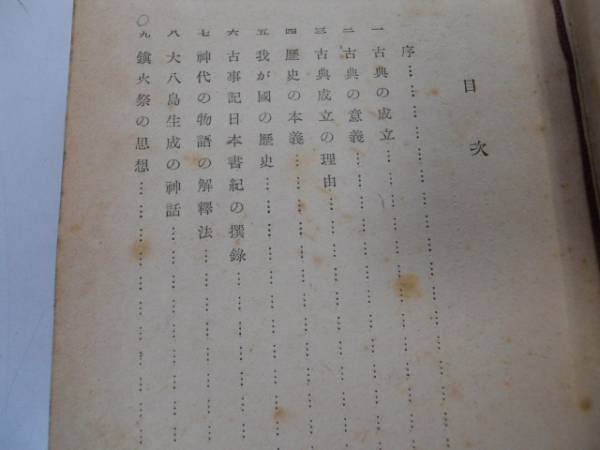 目次
序……………………………
一 古典の成立……………………
二 古典の意義……………………
三 古典成立の理由…………………
四 歷史の本義……………………
五 我が國の歷史……………………
六 古事記日本書紀の撰錄………………
七 神代の物語の解釋法…………………
八 大八島生成の神話…………………
〇九 鎭火祭の思想……………………